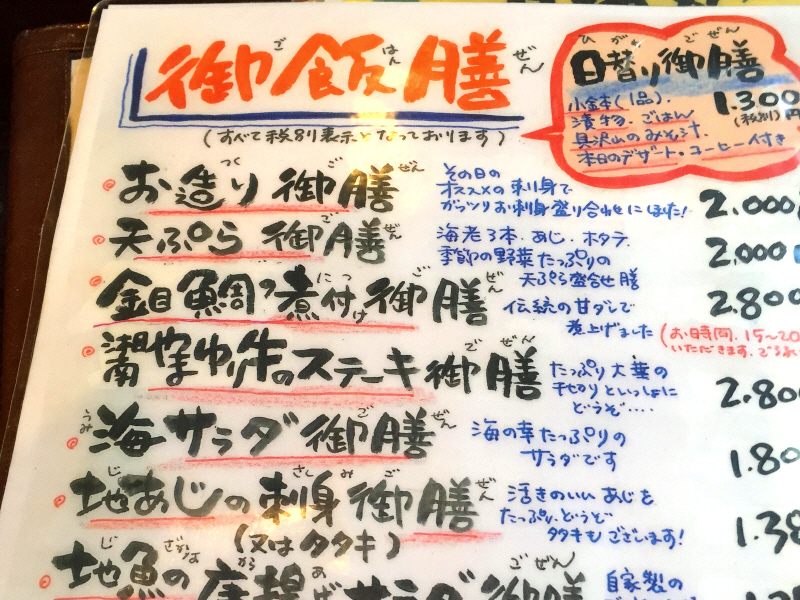 御飯膳
ごはんぜん
(すべて税別表示となっております)
日替り御膳
ひがわりごぜん
小金本(1品).
漬物.ごはん
具沢山のみそ汁.
本日のデザート・コーヒー付き
1.300円
(税別)
お造り御膳
その日の
オススメの刺身で
がっつりお刺身盛り合わせにしました!
2.000
天ぷら御膳
海老3本.あじ.ホタテ.
季節の野菜たっぷりの
天ぷら盛合せ膳
2.000
金目鯛の煮付け御膳
伝統の甘ダレで
煮上げました
(お時間.15~20
いただきます.
2.800
湘南やまゆり牛のステーキ御膳
たっぷり大葉の
千切りといっしょに
どうぞ....
2.80
海サラダ御膳
海の幸たっぷりの
サラダです
1.80
地あじの刺身御膳
(又はタタキ)
活きのいいあじを
たっぷりどうぞ
タタキもございます!
1.38
地魚の唐揚げサラダ御膳
自家製の